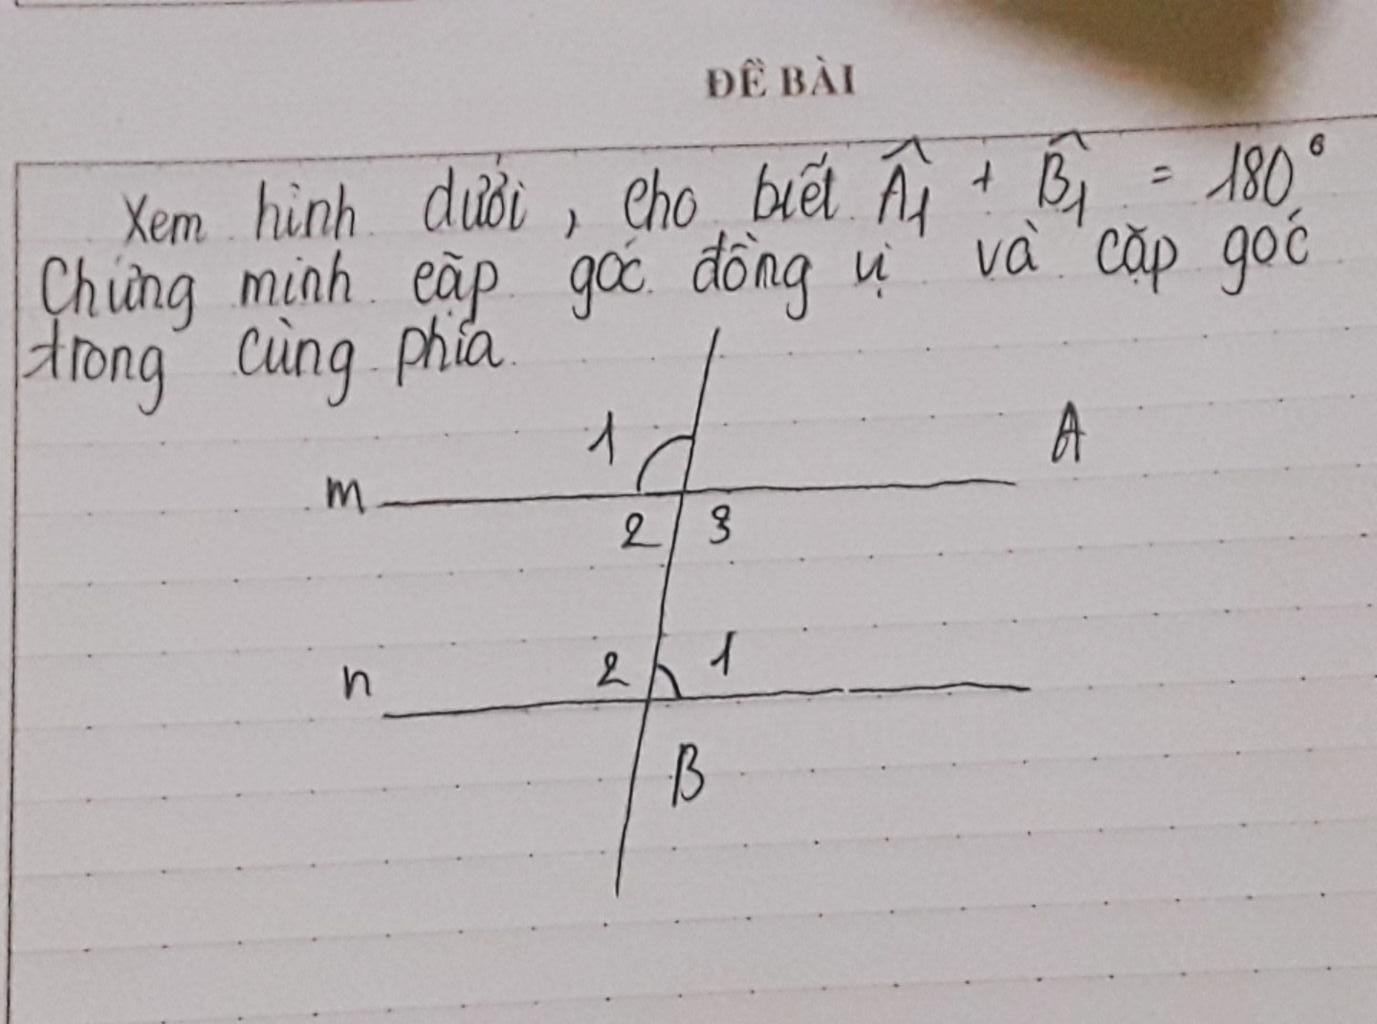 ĐỀ BÀI
Xem hình dưới, cho biết Â₁ + B̂₁ = 180°
Chứng minh cặp góc đồng vị và cặp góc
trong cùng phía.
1
A
m
2 3
n
2 1
B